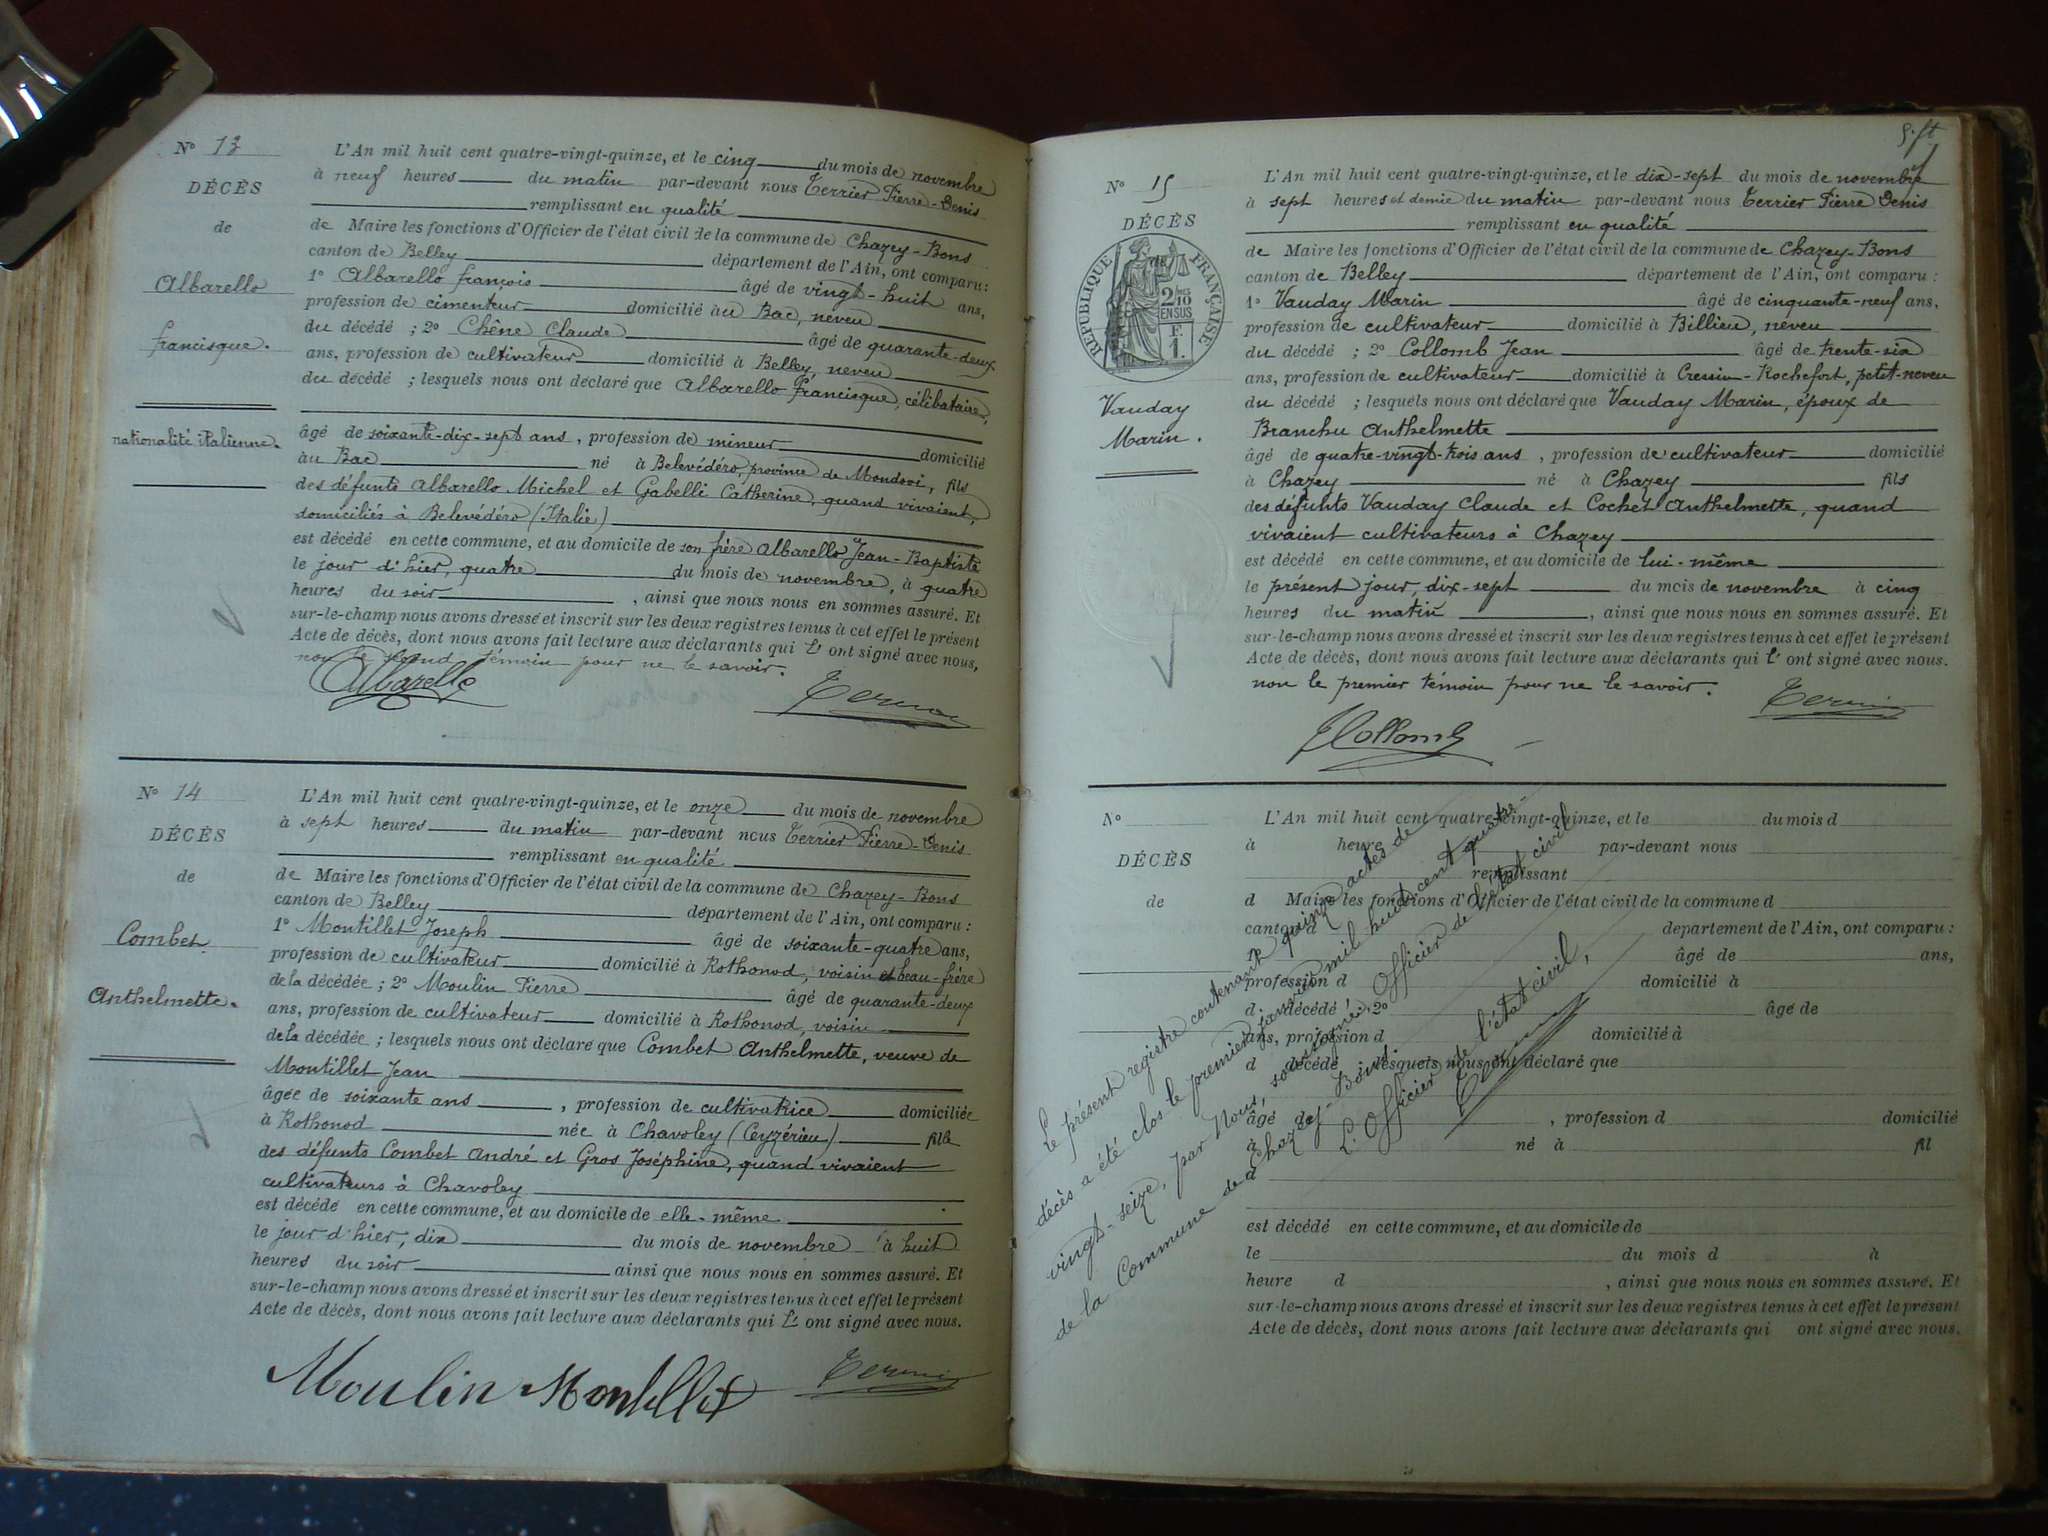 N° 13
DÉCÈS
de
Albarello
francisque.
nationalité italienne.
L'An mil huit cent quatre-vingt-quinze, et le cinq du mois de novembre
à neuf heures du matin par-devant nous Terrier Pierre-Denis
remplissant en qualité
de Maire les fonctions d'Officier de l'état civil de la commune de Chazey-Bons
canton de Belley département de l'Ain, ont comparu :
1° Albarello françois âgé de vingt-huit ans,
profession de cimenteur domicilié au Bac, neveu
du décédé ; 2° Chêne Claude âgé de quarante-deux
ans, profession de cultivateur domicilié à Belley, neveu
du décédé ; lesquels nous ont déclaré que Albarello francisque, célibataire,
âgé de soixante-dix-sept ans, profession de mineur domicilié
au Bac né à Belevédéro, province de Mondovi, fils
des défunts Albarello Michel et Gabelli Catherine, quand vivaient,
domiciliés à Belevédéro (Italie)
est décédé en cette commune, et au domicile de son frère Albarello Jean-Baptiste
le jour d'hier, quatre du mois de novembre, à quatre
heures du soir, ainsi que nous nous en sommes assuré. Et
sur-le-champ nous avons dressé et inscrit sur les deux registres tenus à cet effet le présent
Acte de décès, dont nous avons fait lecture aux déclarants qui l' ont signé avec nous,
non le second témoin pour ne le savoir.
Albarello
N° 14
DÉCÈS
de
Combet
Anthelmette.
L'An mil huit cent quatre-vingt-quinze, et le onze du mois de novembre
à sept heures du matin par-devant nous Terrier Pierre-Denis
remplissant en qualité
de Maire les fonctions d'Officier de l'état civil de la commune de Chazey-Bons
canton de Belley département de l'Ain, ont comparu :
1° Montillet Joseph âgé de soixante-quatre ans,
profession de cultivateur domicilié à Rothonod, voisin et beau-frère
de la décédée ; 2° Moulin Pierre âgé de quarante-deux
ans, profession de cultivateur domicilié à Rothonod, voisin
de la décédée ; lesquels nous ont déclaré que Combet Anthelmette, veuve de
Montillet Jean
âgée de soixante ans, profession de cultivatrice domiciliée
à Rothonod née à Chavoley (Ceyzérieu) fille
des défunts Combet André et Gros Joséphine, quand vivaient
cultivateurs à Chavoley
est décédé en cette commune, et au domicile de elle-même
le jour d'hier, dix du mois de novembre à huit
heures du soir ainsi que nous nous en sommes assuré. Et
sur-le-champ nous avons dressé et inscrit sur les deux registres tenus à cet effet le présent
Acte de décès, dont nous avons fait lecture aux déclarants qui l' ont signé avec nous.
Moulin Montillet
N° 15
DÉCÈS
RÉPUBLIQUE FRANÇAISE
2/10 EN SUS
F. 1.
Vauday
Marin.
L'An mil huit cent quatre-vingt-quinze, et le dix-sept du mois de novembre
à sept heures et demie du matin par-devant nous Terrier Pierre Denis
remplissant en qualité
de Maire les fonctions d'Officier de l'état civil de la commune de Chazey-Bons
canton de Belley département de l'Ain, ont comparu :
1° Vauday Marin âgé de cinquante-neuf ans,
profession de cultivateur domicilié à Billieu, neveu
du décédé ; 2° Collomb Jean âgé de trente-six
ans, profession de cultivateur domicilié à Cressin-Rochefort, petit-neveu
du décédé ; lesquels nous ont déclaré que Vauday Marin, époux de
Branchu Anthelmette
âgé de quatre-vingt-trois ans, profession de cultivateur domicilié
à Chazey né à Chazey fils
des défunts Vauday Claude et Cochet Anthelmette, quand
vivaient cultivateurs à Chazey
est décédé en cette commune, et au domicile de lui-même
le présent jour, dix-sept du mois de novembre à cinq
heures du matin, ainsi que nous nous en sommes assuré. Et
sur-le-champ nous avons dressé et inscrit sur les deux registres tenus à cet effet le présent
Acte de décès, dont nous avons fait lecture aux déclarants qui l' ont signé avec nous.
non le premier témoin pour ne le savoir.
JCollomb
N°
DÉCÈS
de
L'An mil huit cent quatre-vingt-quinze, et le du mois d
à heure par-devant nous
remplissant
d Maire les fonctions d'Officier de l'état civil de la commune d
canton d département de l'Ain, ont comparu :
1° âgé de ans,
profession d domicilié à
d décédé ; 2° âgé de
ans, profession d domicilié à
d décédé ; lesquels nous ont déclaré que
âgé de , profession d domicilié
à né à fil
est décédé en cette commune, et au domicile de
le du mois d à
heure d , ainsi que nous nous en sommes assuré. Et
sur-le-champ nous avons dressé et inscrit sur les deux registres tenus à cet effet le présent
Acte de décès, dont nous avons fait lecture aux déclarants qui ont signé avec nous.
Le présent registre contenant quinze actes de
décès a été clos le premier janvier mil huit cent quatre-
vingt-seize, par Nous, soussigné, Officier de l'état civil
de la Commune de Chazey-Bons.
L'Officier de l'état civil,